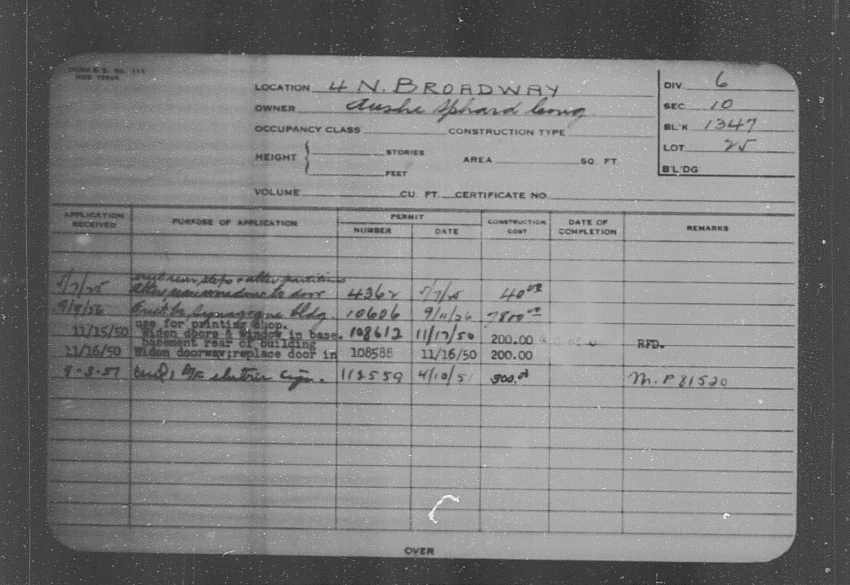 LOCATION 4 N. BROADWAY
OWNER Anshe Sphard Cong
OCCUPANCY CLASS CONSTRUCTION TYPE
HEIGHT STORIES
FEET
AREA SQ. FT.
VOLUME CU. FT. CERTIFICATE NO.
DIV. 6
SEC 10
BL'K 1347
LOT 25
B'L'DG
APPLICATION RECEIVED PURPOSE OF APPLICATION PERMIT NUMBER DATE CONSTRUCTION COST DATE OF COMPLETION REMARKS
erect rear steps & alter partitions
5/7/25 Alter rear window to door 4362 5/7/25 40.00
9/9/26 Erect br Synagogue bldg 10606 9/11/26
use for printing shop.
11/15/50 Widen doors & window in base. 108612 11/17/50 200.00 RFD.
basement rear of building
11/16/50 Widen doorway;replace door in 108588 11/16/50 200.00
sign. 112559 4/10/51 300.00 M.P 81520
OVER